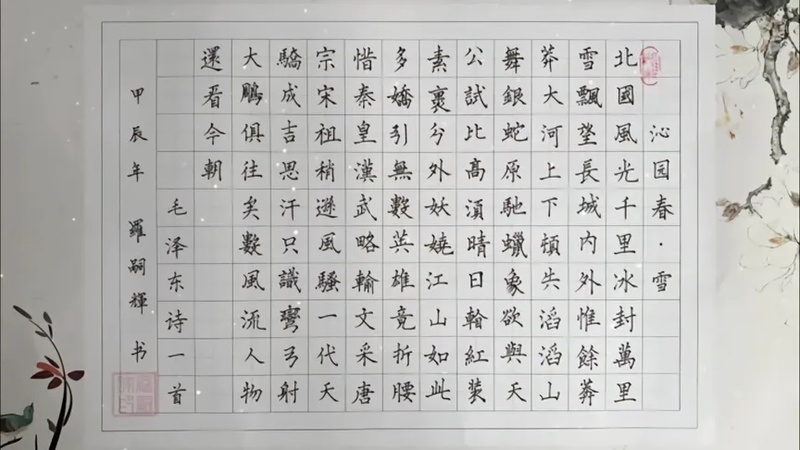 沁园春·雪
北國風光千里冰封萬里
雪飄望長城內外惟餘莽
莽大河上下頓失滔滔山
舞銀蛇原馳蠟象欲與天
公試比高湏晴日輪紅裝
素裹兮外妖嬈江山如此
多嬌引無數英雄竟折腰
惜秦皇漢武略輸文采唐
宗宋祖稍遜風騷一代天
驕成吉思汗只識彎弓射
大鵰俱往矣數風流人物
還看今朝
毛泽东诗一首
甲辰年 羅嗣輝书